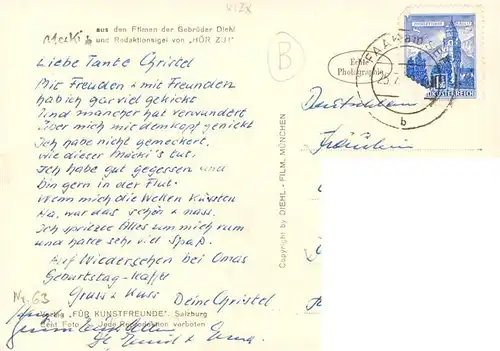 Mecki
aus den Filmen der Gebrüder Diehl
und Redaktionsigel von "HÖR ZU!"
Liebe Tante Christel
Mit Freuden & mit Freunden
hab ich gar viel gekickt
Und mancher hat verwundert
Über mich mit dem Kopf genickt
Ich habe nicht gemeckert,
wie dieser Mecki's tut.
Ich habe gut gegessen und
bin gern in der Flut.
Wenn mich die Wellen küssten
Na, war das schön & nass.
Ich spritze Alles um mich rum
und hatte sehr viel Spaß.
Auf Wiedersehen bei Omas
Geburtstag-Kaffe
Gruss & Kuss Deine Christel
Nr. 63
Verlag "FÜR KUNSTFREUNDE", Salzburg
Echt Foto Jede Reproduktion verboten
Copyright by DIEHL - FILM, MÜNCHEN
B
Echte
Photographie
FAAK am See
b
REPUBLIK ÖSTERREICH
Deutschland
Fräulein